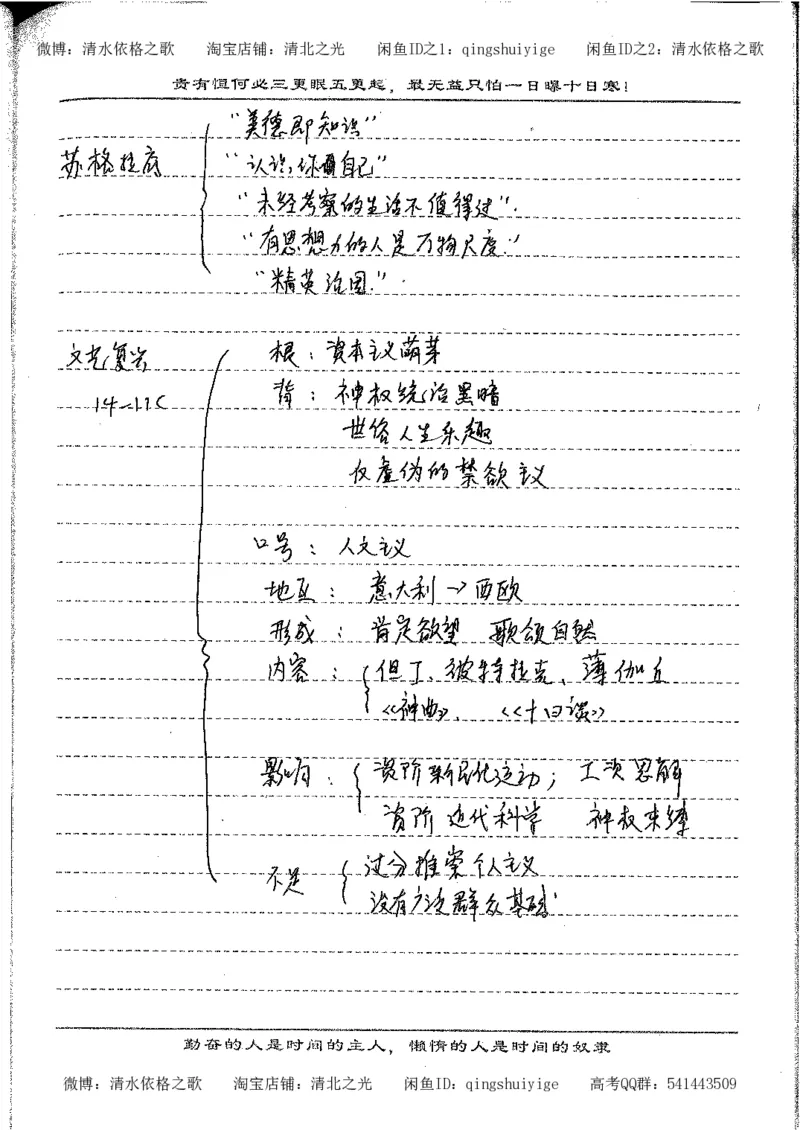 微博：清水依格之歌 淘宝店铺：清北之光 闲鱼ID之1：qingshuiyige 闲鱼ID之2：清水依格之歌
贵有恒何必三更眠五更起，最无益只怕一日曝十日寒！
"美德即知识"
苏格拉底 "认识你自己"
"未经考察的生活不值得过"．
"有思想力的人是万物尺度．"
"精英治国．"
文艺复兴 根：资本主义萌芽
14-17C 背：神权统治黑暗
世俗人生乐趣
反虚伪的禁欲主义
口号：人文主义
地区：意大利→西欧
形成：肯定欲望 歌颂自然
内容：但丁、彼特拉克、薄伽丘
《神曲》、《十日谈》
影响：资阶新文化运动；工次思解
资阶近代科学 神权束缚
不足 过分推崇个人主义
没有广泛群众基础
勤奋的人是时间的主人，懒惰的人是时间的奴隶
微博：清水依格之歌 淘宝店铺：清北之光 闲鱼ID：qingshuiyige 高考QQ群：541443509